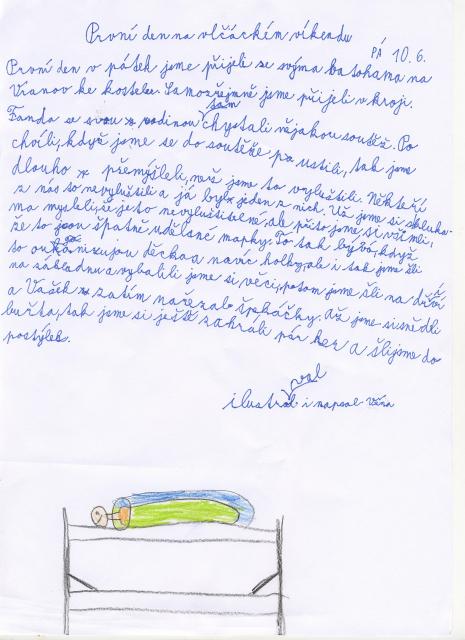 První den na vlčáckím víkendu
PÁ 10.6.
První den v pátek jsme přijeli se svýma batohama na
Vranov ke kostelu. Samozřejmě jsme přijeli v kroji.
Fanda se svou rodinou sám chystali nějakou soutěž. Po
chvíli, když jsme se do soutěže pustili, tak jsme
dlouho přemýšleli, než jsme to vyluštili. Někteří
z nás to nevyluštili a já byl jeden z nich. Už jsme si
ma mysleli, že je to nevyluštitelné, ale přito jsme si všimli,
že to jsou špatně udělané mapky. To tak bývá, když
to organizujou děcka a navíc holky, ale i tak jsme šli
na základnu a vybalili jsme si věci, potom jsme šli na dříví
a Vašek zatím nařezal špekáčky. Až jsme si snědli
buřta, tak jsme si ještě zahráli pár her a šli jsme do
postýlek.
ilustroval i napsal Véna